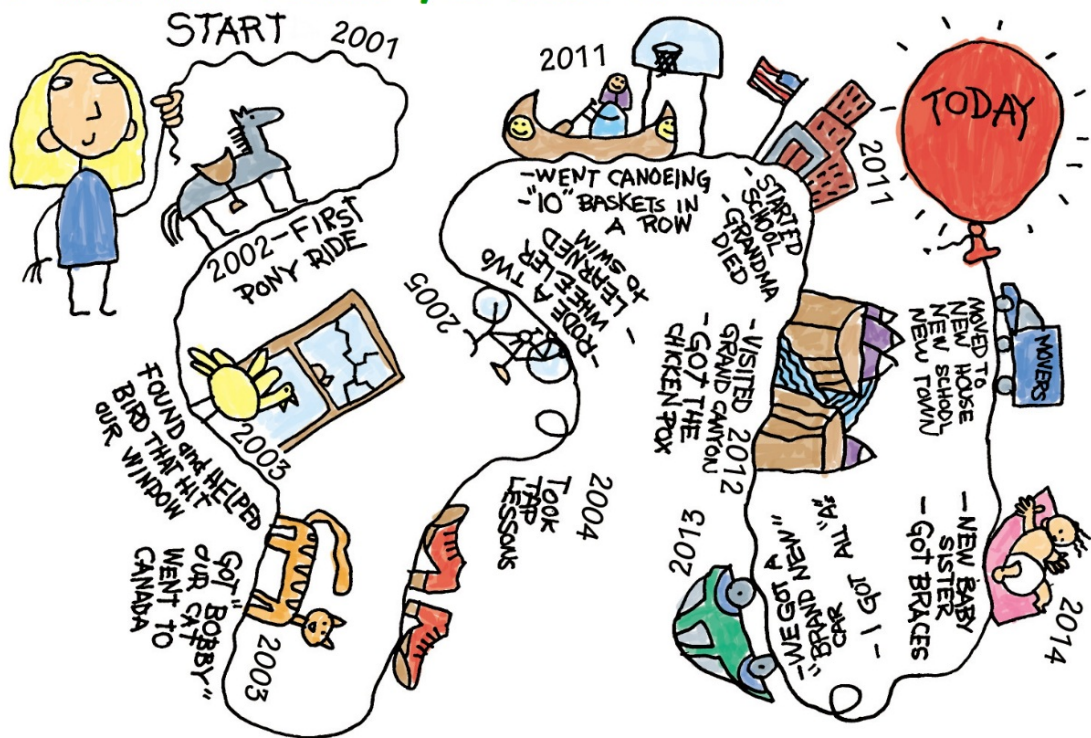 START
2001
2002-FIRST
PONY RIDE
2003
FOUND and HELPED
BIRD THAT HIT
OUR WINDOW
2003
GOT "BOBBY"
OUR CAT
WENT TO
CANADA
2004
TOOK
TAP
LESSONS
2005
-RODE A TWO
WHEELER
- LEARNED
TO SWIM
2011
-WENT CANOEING
-"10" BASKETS IN
A ROW
2011
-STARTED
SCHOOL
-GRANDMA
DIED
2012
-VISITED
GRAND CANYON
-GOT THE
CHICKEN POX
2013
-WE GOT A
"BRAND NEW"
CAR
- I GOT ALL "A's"
2014
-NEW BABY
SISTER
-GOT BRACES
MOVED TO
NEW HOUSE
NEW SCHOOL
NEW TOWN
MOVERS
TODAY